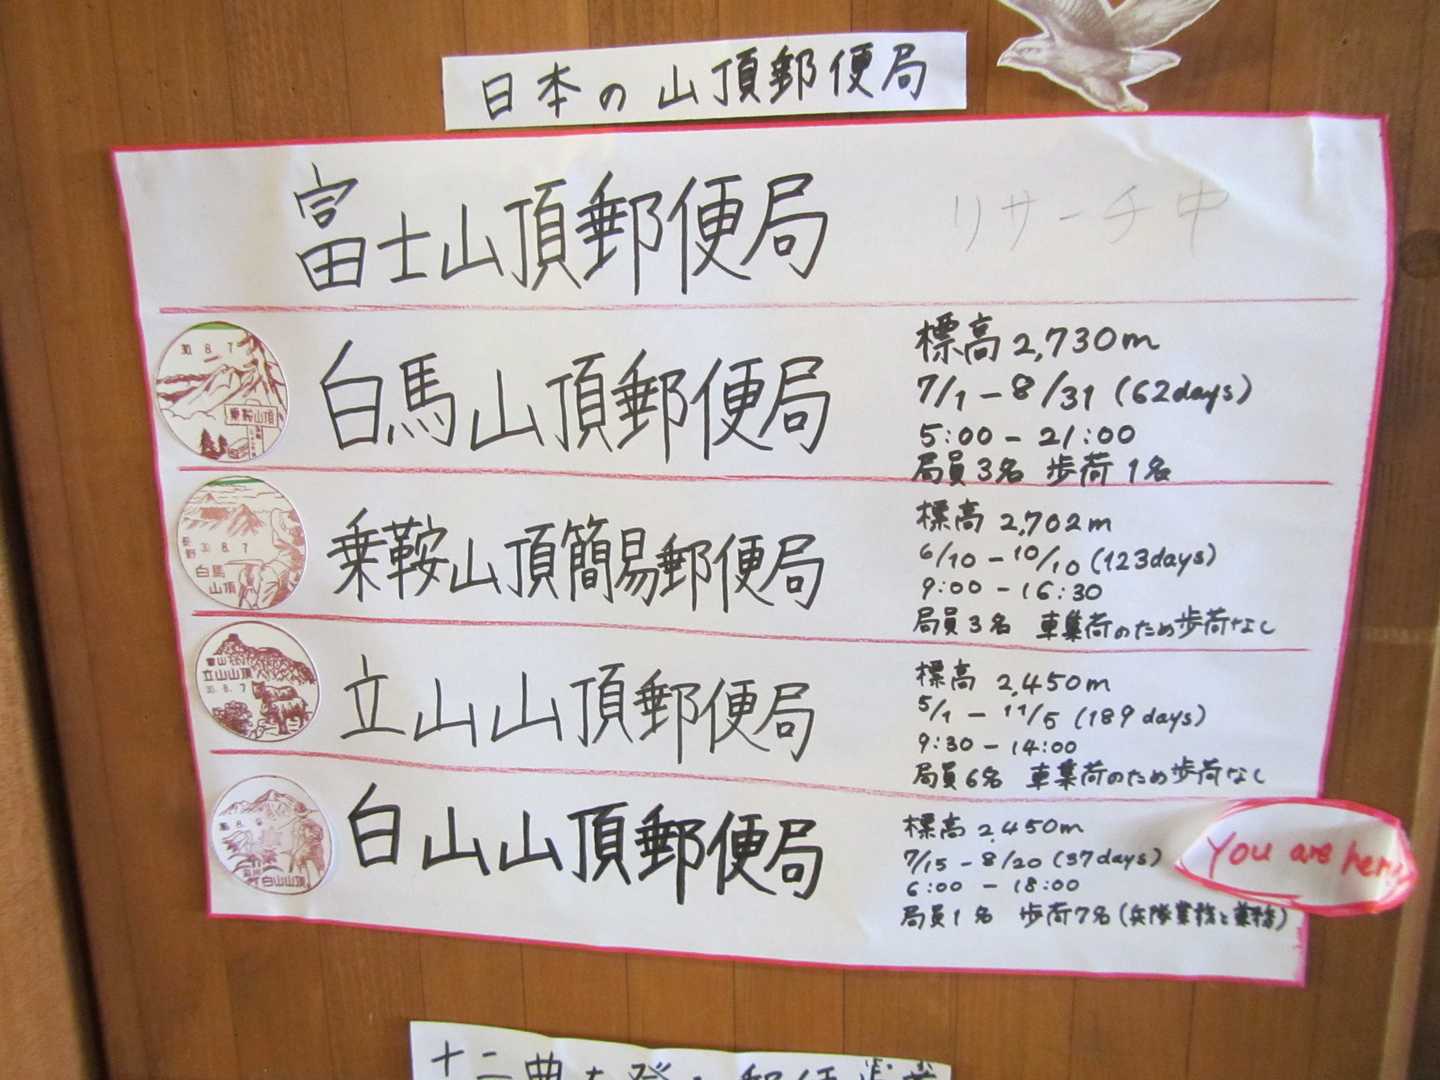 日本の山頂郵便局
富士山頂郵便局
リサーチ中
30.8.7
乗鞍山頂
白馬山頂郵便局
標高2,730m
7/1-8/31 (62days)
5:00-21:00
局員3名 歩荷1名
長野 30.8.7
白馬
山頂
乗鞍山頂簡易郵便局
標高2,702m
6/10-10/10 (123days)
9:00-16:30
局員3名 車集荷のため歩荷なし
富山
立山山頂
30.8.7
立山山頂郵便局
標高2,450m
5/1-11/5 (189days)
9:30-14:00
局員6名 車集荷のため歩荷なし
白山山頂
白山山頂郵便局
標高2,450m
7/15-8/20 (37days)
6:00-18:00
局員1名 歩荷7名(兵隊業務と兼務)
You are here
十二曲を登る郵便歩荷